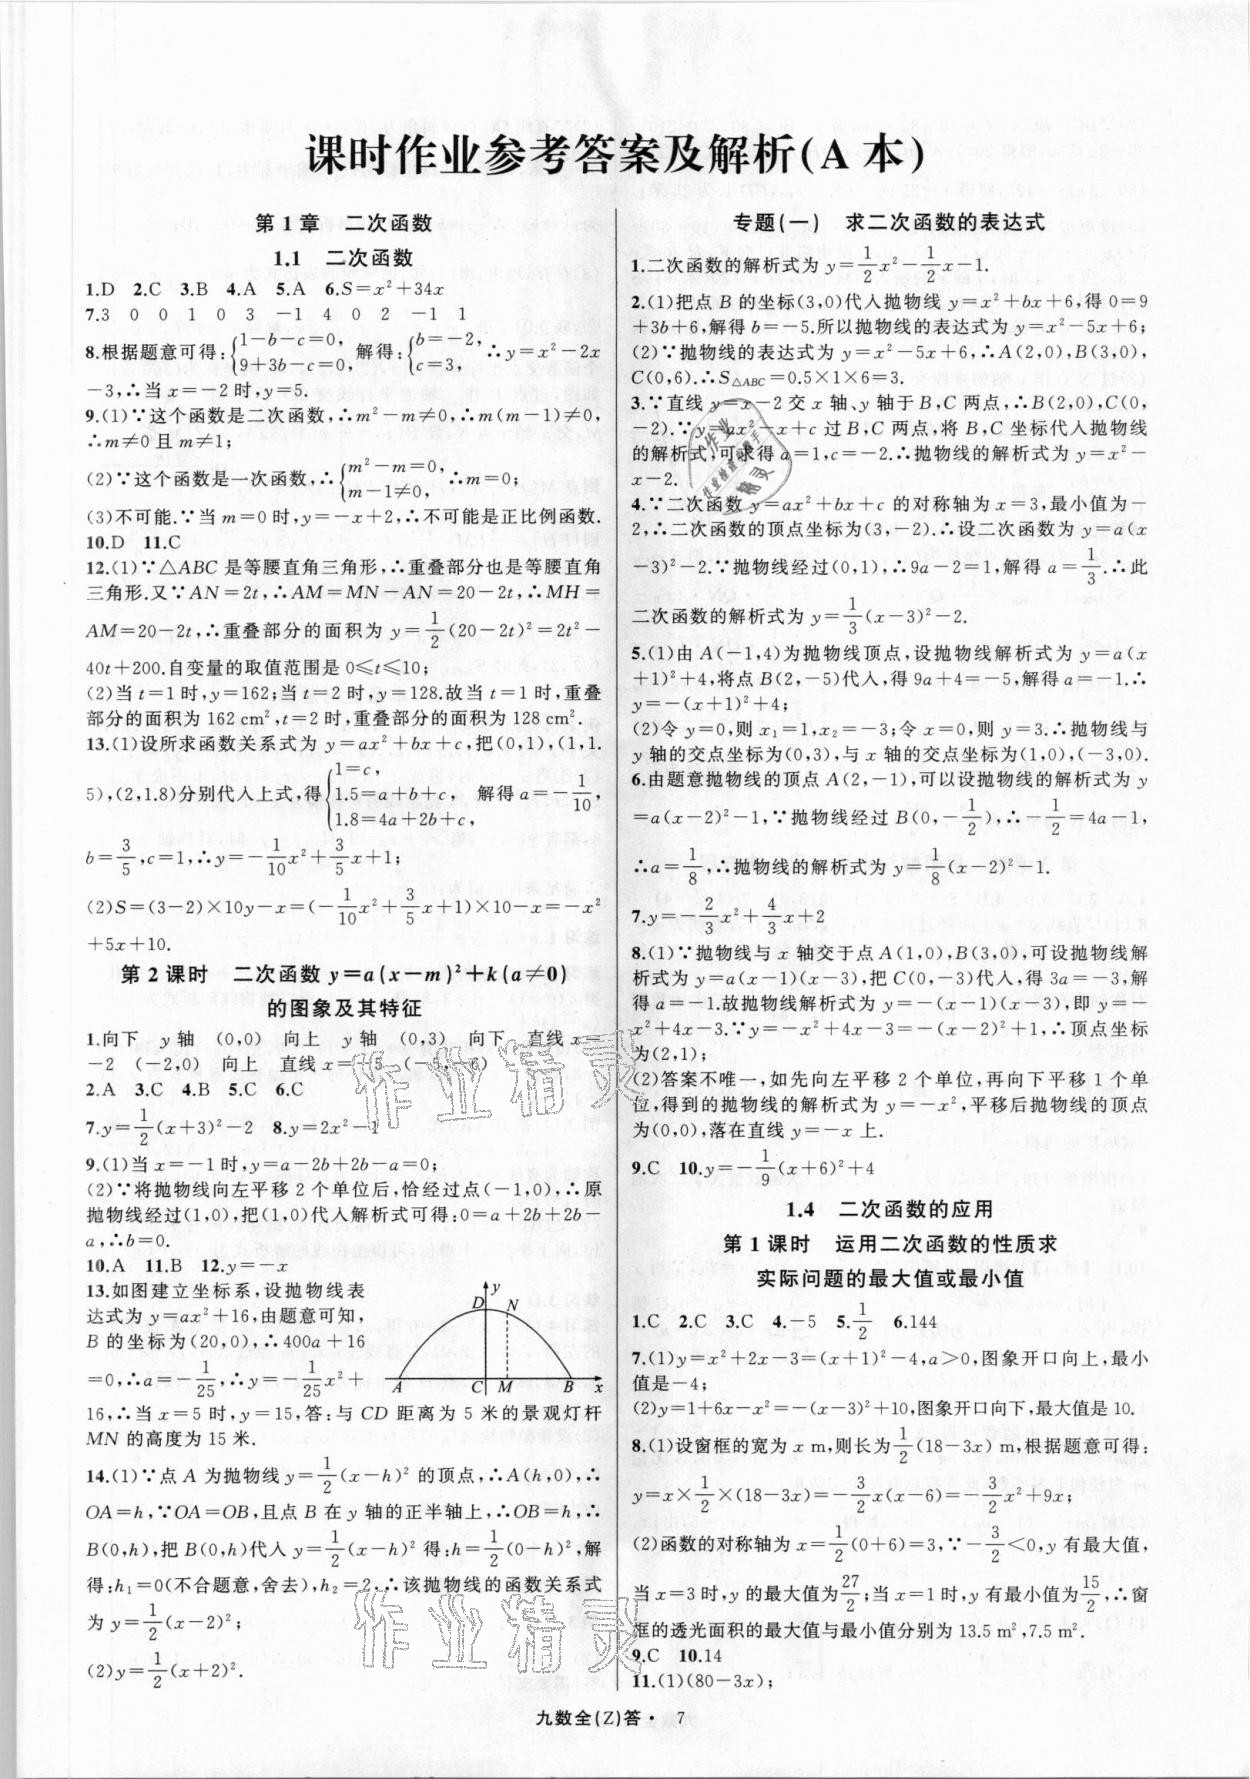 课时作业参考答案及解析(A本)
第1章 二次函数
1.1 二次函数
1.D 2.C 3.B 4.A 5.A 6.S=x²+34x
7.3 0 0 1 0 3 −1 4 0 2 −1 1
8.根据题意可得:{1−b−c=0, 9+3b−c=0, 解得:{b=−2, c=3, ∴y=x²−2x
−3,∴当x=−2时,y=5.
9.(1)∵这个函数是二次函数,∴m²−m≠0,∴m(m−1)≠0,
∴m≠0且m≠1;
(2)∵这个函数是一次函数,∴{m²−m=0, m−1≠0, ∴m=0;
(3)不可能.∵当m=0时,y=−x+2,∴不可能是正比例函数.
10.D 11.C
12.(1)∵△ABC是等腰直角三角形,∴重叠部分也是等腰直角
三角形.又∵AN=2t,∴AM=MN−AN=20−2t,∴MH=
AM=20−2t,∴重叠部分的面积为y=1/2(20−2t)²=2t²−
40t+200.自变量的取值范围是0≤t≤10;
(2)当t=1时,y=162;当t=2时,y=128.故当t=1时,重叠
部分的面积为162 cm²,t=2时,重叠部分的面积为128 cm².
13.(1)设所求函数关系式为y=ax²+bx+c,把(0,1),(1,1.
5),(2,1.8)分别代入上式,得{1=c, 1.5=a+b+c, 1.8=4a+2b+c, 解得a=−1/10,
b=3/5,c=1,∴y=−1/10x²+3/5x+1;
(2)S=(3−2)×10y−x=(−1/10x²+3/5x+1)×10−x=−x²
+5x+10.
第2课时 二次函数y=a(x−m)²+k(a≠0)
的图象及其特征
1.向下 y轴 (0,0) 向上 y轴 (0,3) 向下 直线x=
−2 (−2,0) 向上 直线x=−5 (−5,−6)
2.A 3.C 4.B 5.C 6.C
7.y=1/2(x+3)²−2 8.y=2x²−1
9.(1)当x=−1时,y=a−2b+2b−a=0;
(2)∵将抛物线向左平移2个单位后,恰经过点(−1,0),∴原
抛物线经过(1,0),把(1,0)代入解析式可得:0=a+2b+2b−
a,∴b=0.
10.A 11.B 12.y=−x
13.如图建立坐标系,设抛物线表
达式为y=ax²+16,由题意可知,
B的坐标为(20,0),∴400a+16
=0,∴a=−1/25,∴y=−1/25x²+
16,∴当x=5时,y=15,答:与CD距离为5米的景观灯杆
MN的高度为15米.
y D N A C M B x
14.(1)∵点A为抛物线y=1/2(x−h)²的顶点,∴A(h,0),∴
OA=h,∵OA=OB,且点B在y轴的正半轴上,∴OB=h,∴
B(0,h),把B(0,h)代入y=1/2(x−h)²得:h=1/2(0−h)²,解
得:h₁=0(不合题意,舍去),h₂=2,∴该抛物线的函数关系式
为y=1/2(x−2)²;
(2)y=1/2(x+2)².
专题(一) 求二次函数的表达式
1.二次函数的解析式为y=1/2x²−1/2x−1.
2.(1)把点B的坐标(3,0)代入抛物线y=x²+bx+6,得0=9
+3b+6,解得b=−5.所以抛物线的表达式为y=x²−5x+6;
(2)∵抛物线的表达式为y=x²−5x+6,∴A(2,0),B(3,0),
C(0,6).∴S△ABC=0.5×1×6=3.
3.∵直线y=x−2交x轴、y轴于B,C两点,∴B(2,0),C(0,
−2).∵y=ax²−x+c过B,C两点,将B,C坐标代入抛物线
的解析式,可求得a=1,c=−2.∴抛物线的解析式为y=x²−
x−2.
4.∵二次函数y=ax²+bx+c的对称轴为x=3,最小值为−
2,∴二次函数的顶点坐标为(3,−2).∴设二次函数为y=a(x
−3)²−2.∵抛物线经过(0,1),∴9a−2=1,解得a=1/3.∴此
二次函数的解析式为y=1/3(x−3)²−2.
5.(1)由A(−1,4)为抛物线顶点,设抛物线解析式为y=a(x
+1)²+4,将点B(2,−5)代入,得9a+4=−5,解得a=−1.∴
y=−(x+1)²+4;
(2)令y=0,则x₁=1,x₂=−3;令x=0,则y=3.∴抛物线与
y轴的交点坐标为(0,3),与x轴的交点坐标为(1,0),(−3,0).
6.由题意抛物线的顶点A(2,−1),可以设抛物线的解析式为y
=a(x−2)²−1,∵抛物线经过B(0,−1/2),∴−1/2=4a−1,
∴a=1/8,∴抛物线的解析式为y=1/8(x−2)²−1.
7.y=−2/3x²+4/3x+2
8.(1)∵抛物线与x轴交于点A(1,0),B(3,0),可设抛物线解
析式为y=a(x−1)(x−3),把C(0,−3)代入,得3a=−3,解
得a=−1.故抛物线解析式为y=−(x−1)(x−3),即y=−
x²+4x−3.∵y=−x²+4x−3=−(x−2)²+1,∴顶点坐标
为(2,1);
(2)答案不唯一,如先向左平移2个单位,再向下平移1个单
位,得到的抛物线的解析式为y=−x²,平移后抛物线的顶点
为(0,0),落在直线y=−x上.
9.C 10.y=−1/9(x+6)²+4
1.4 二次函数的应用
第1课时 运用二次函数的性质求
实际问题的最大值或最小值
1.C 2.C 3.C 4.−5 5.1/2 6.144
7.(1)y=x²+2x−3=(x+1)²−4,a>0,图象开口向上,最小
值是−4;
(2)y=1+6x−x²=−(x−3)²+10,图象开口向下,最大值是10.
8.(1)设窗框的宽为x m,则长为1/2(18−3x) m,根据题意可得:
y=x×1/2×(18−3x)=−3/2x(x−6)=−3/2x²+9x;
(2)函数的对称轴为x=1/2(0+6)=3,∵−3/2<0,y有最大值,
当x=3时,y的最大值为27/2;当x=1时,y有最小值为15/2,∴窗
框的透光面积的最大值与最小值分别为13.5 m²,7.5 m².
9.C 10.14
11.(1)(80−3x);
九数全(Z)答·7
作业精灵
作业精灵